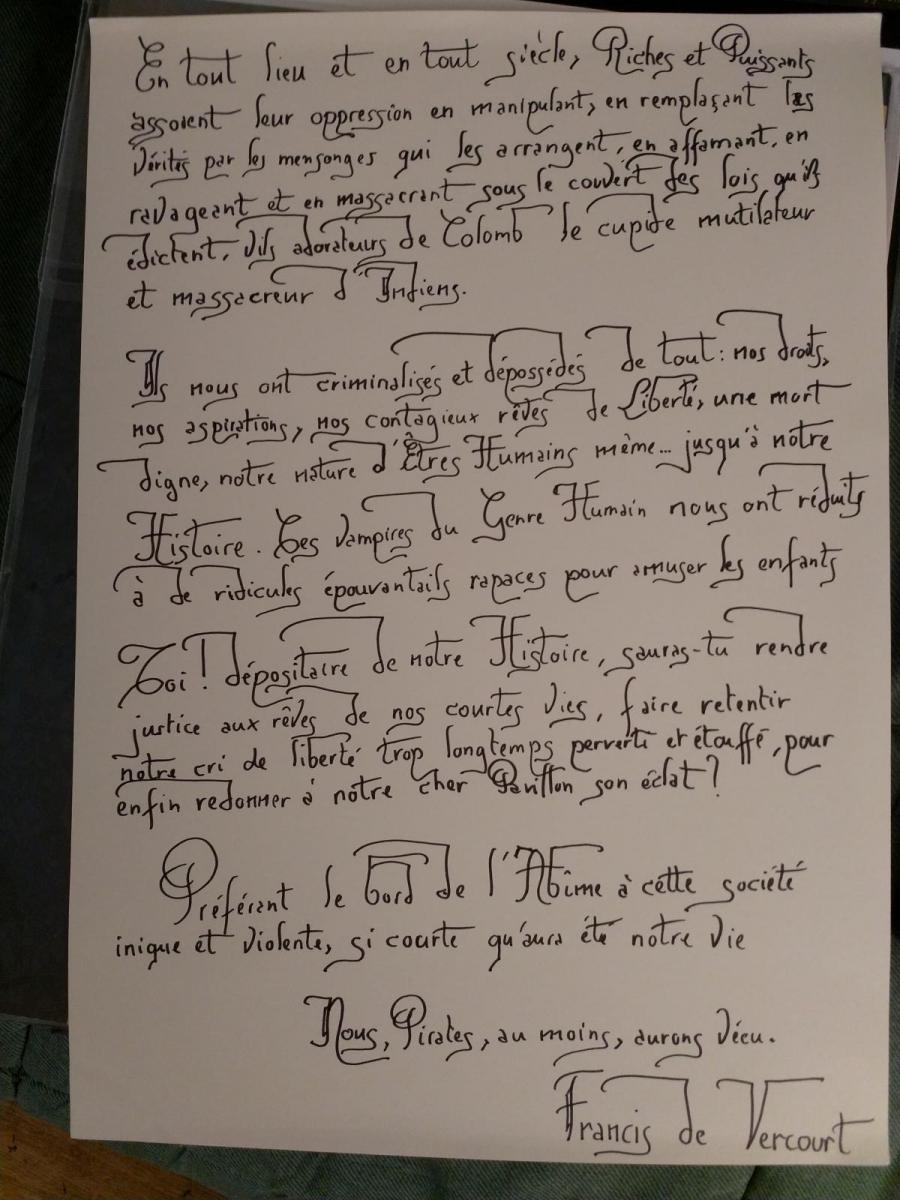 En tout lieu et en tout siècle, Riches et Puissants
assoient leur oppression en manipulant, en remplaçant les
Vérités par les mensonges qui les arrangent, en affamant, en
ravageant et en massacrant sous le couvert des lois qu'ils
édictent, Vils adorateurs de Colomb le cupide mutilateur
et massacreur d'Indiens.
Ils nous ont criminalisés et dépossédés de tout : nos droits,
nos aspirations, nos contagieux rêves de Liberté, une mort
digne, notre nature d'Êtres Humains même... jusqu'à notre
Histoire. Ces Vampires du Genre Humain nous ont réduits
à de ridicules épouvantails rapaces pour amuser les enfants
Toi ! dépositaire de notre Histoire, sauras-tu rendre
justice aux rêves de nos courtes Vies, faire retentir
notre cri de liberté trop longtemps perverti et étouffé, pour
enfin redonner à notre cher Pavillon son éclat ?
Préférant le bord de l'Abîme à cette société
inique et Violente, si courte qu'aura été notre Vie
Nous, Pirates, au moins, aurons Vécu.
Francis de Vercourt